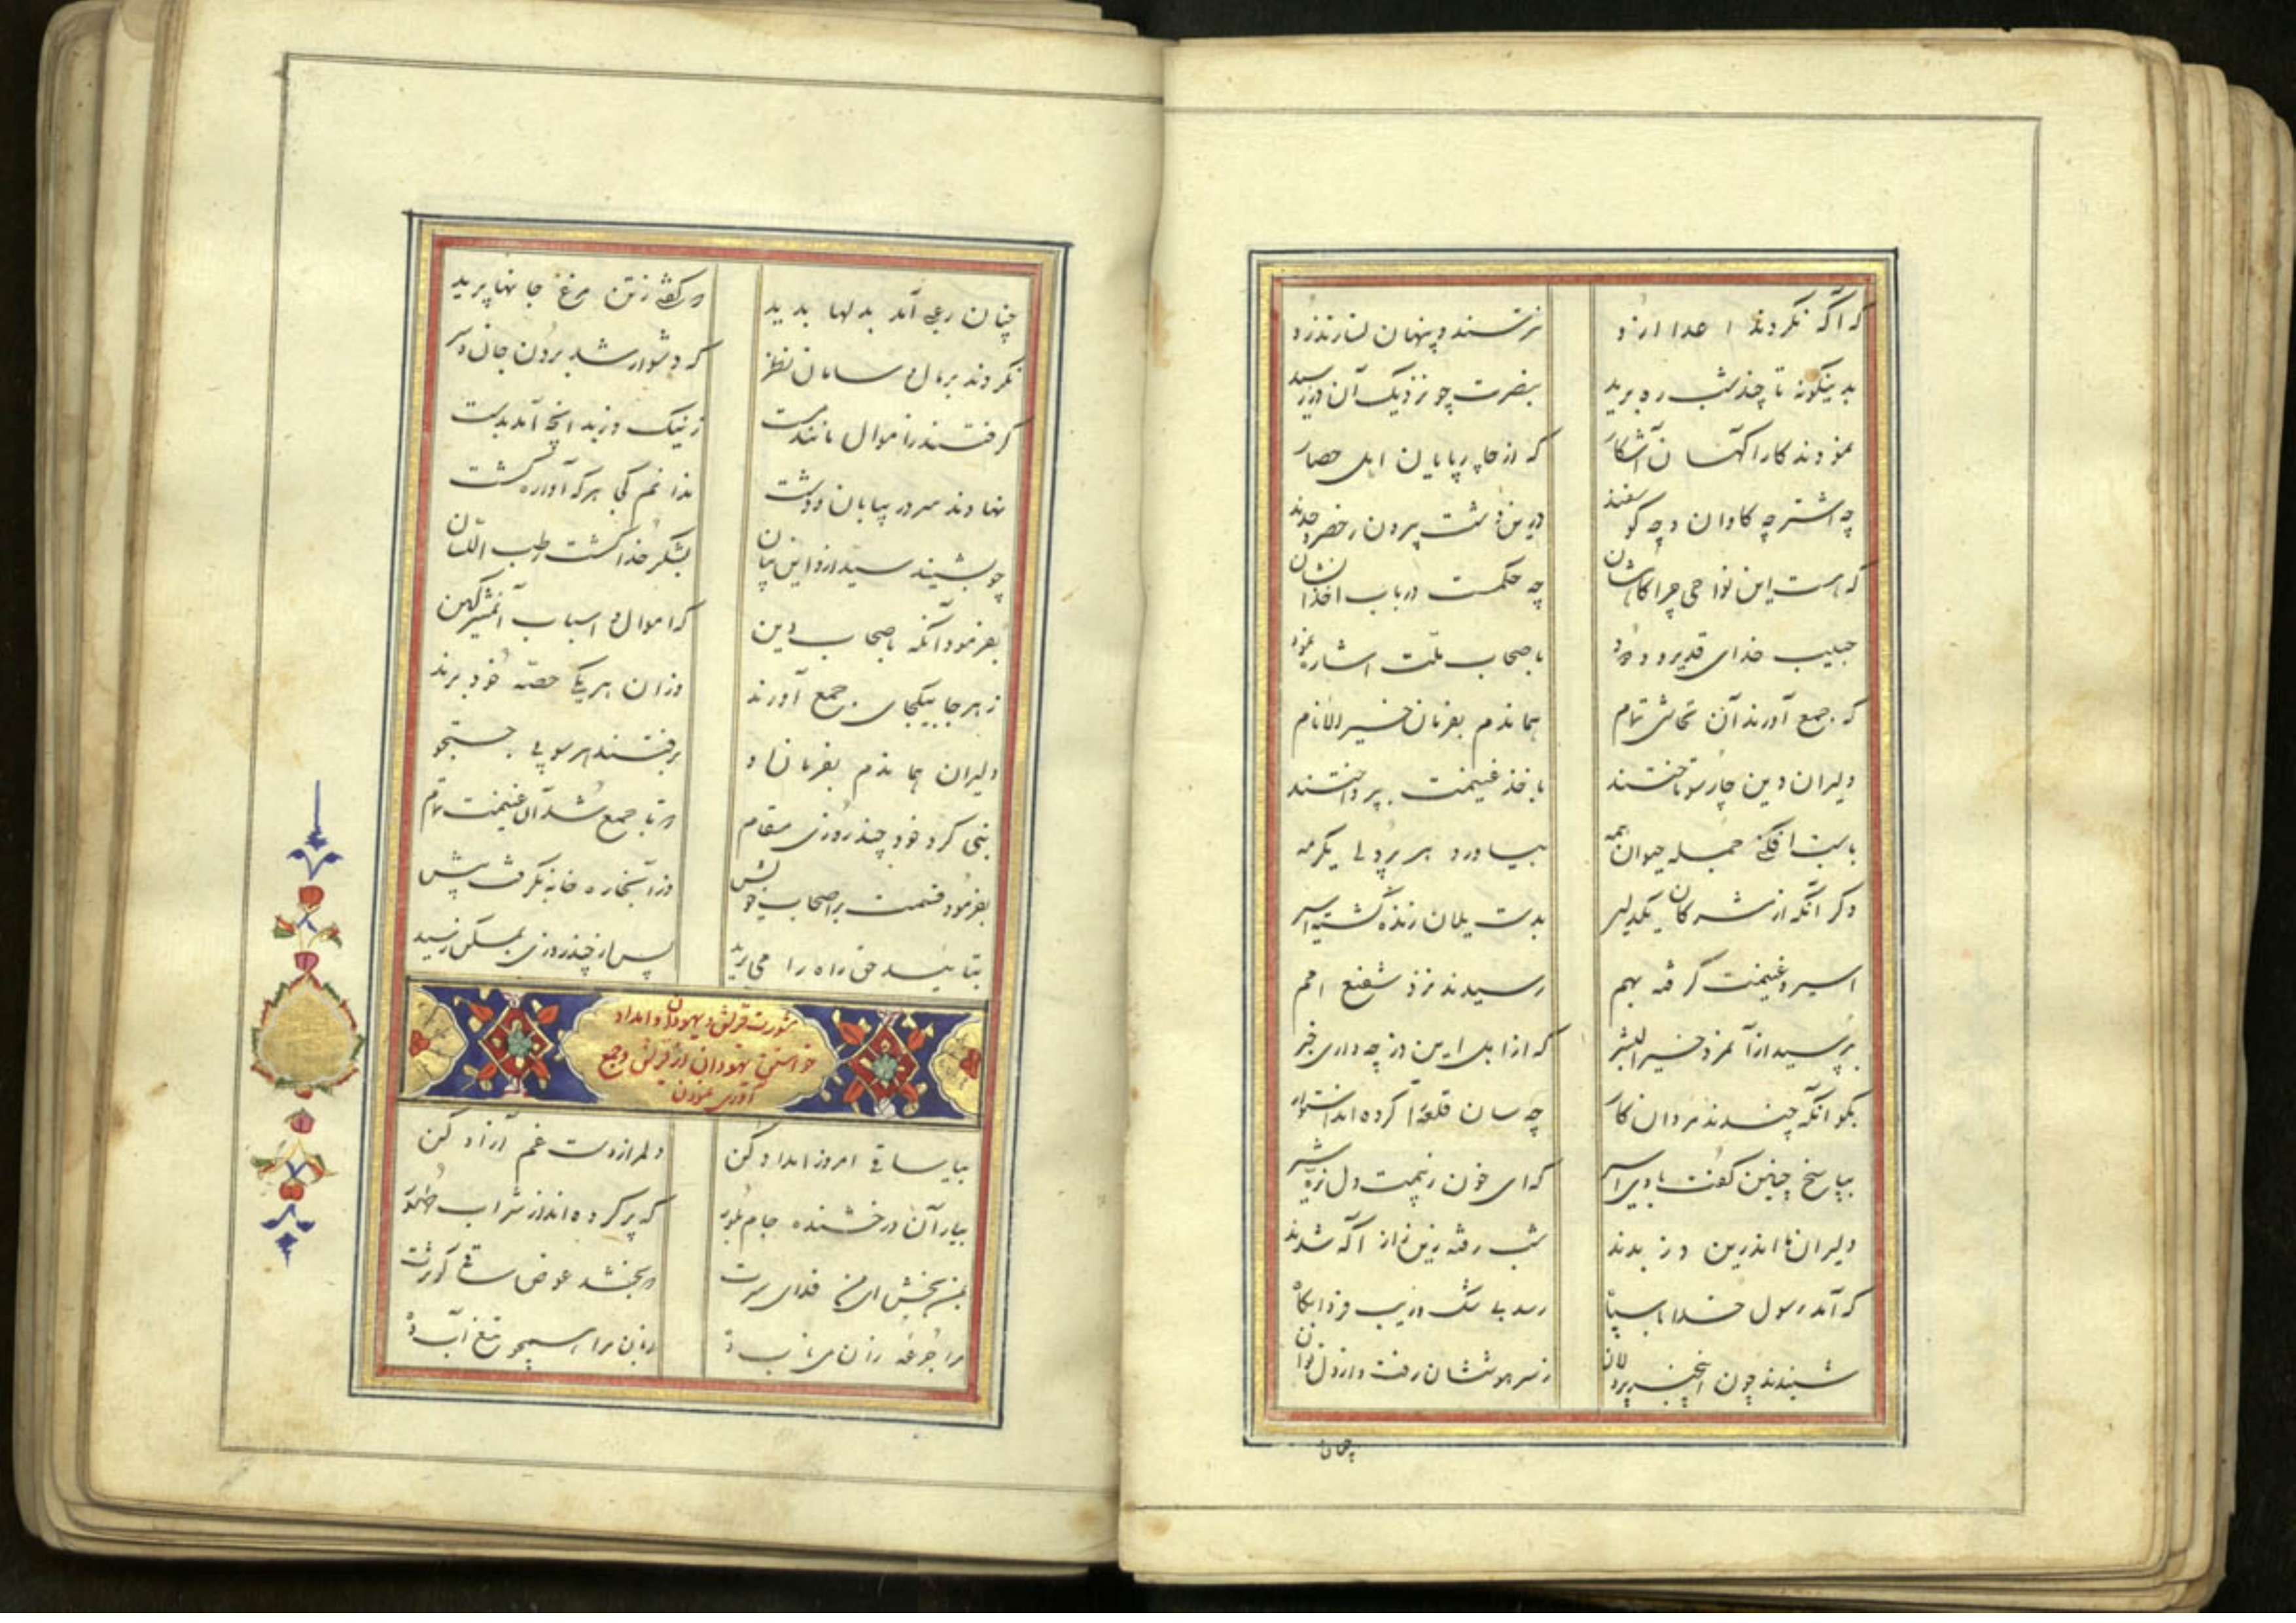 که آگه نکردند اعدا ازو نترسند و پنهان نسازند رو
بدینگونه تا چند شب ره برید بنصرت چو نزدیک آن دز رسید
نمودند کارآگهان آشکار که از چارپایان اهل حصار
چه اشتر چه گاوان و چه گوسفند درین دشت بیرون ز حصر و حدند
که هست این نواحی چراگاهشان چه حکمست در باب اخذ آن
حبیب خدای قدیر و ودود باصحاب ملت اشاره نمود
که جمع آورند آن مواشی تمام هماندم بفرمان خیر الانام
دلیران دین چارسو تاختند باخذ غنیمت بپرداختند
جمله حیوان همه بیاورد هر پردلی یکرمه
دگر آنکه از مشرکان یکدلیر بدست یلان زنده گشته اسیر
اسیر و غنیمت گرفته بهم رسیدند نزد شفیع امم
بپرسید از آنمرد خیر البشر که از اهل این دز چه داری خبر
بگو آنکه چندند مردان کار چه سان قلعه را کرده اند استوار
بپاسخ چنین گفت بادی اسیر که ای خون ز بیمت دل نره شیر
دلیران ما اندرین دز بدند شب رفته زین راز آگه شدند
که آمد رسول خدا با سپاه رسد بی شک و ریب فردا پگاه
شنیدند چون اینخبر پردلان ز سر هوششان رفت و از دل توان
چنان
چنان رعبی آمد بدلها پدید که گفتی ز تن مرغ جانها پرید
نکردند بر مال و سامان نظر که دشوار شد بردن جان و سر
گرفتند ز اموال ماندند ز نیک و ز بد آنچه آمد بدست
نهادند سر در بیابان و دشت ندانم کجا هر که آواره گشت
چو بشنید سید ازو این بیان بشکر خدا گشت رطب اللسان
بفرمود آنگه باصحاب دین که اموال و اسباب
ز هر جا بیکجای جمع آورند وزان هر یکی حصه خود برند
دلیران هماندم بفرمان او برفتند هر سو پی جستجو
نبی کرد خود چند روزی مقام که تا جمع شد آن غنیمت تمام
بفرمود قسمت بر اصحاب خویش وز آنجا ره خانه بگرفت پیش
بتایید حق راه را می برید پس از چند روزی بمسکن رسید
مشورت قریش و یهودان و امداد
خواستن یهودان از قریش و جمع
آوری نمودن
بیا ساقی امروز امداد کن دلم را ز دست غم آزاد کن
بیار آن درخشنده جام بلور که پر کرده اند از شراب طهور
بمن بخش ای من فدای سرت که بخشد عوض ساقی کوثرت
مرا جرعه زان می ناب ده زبان مرا همچو تیغ آب ده